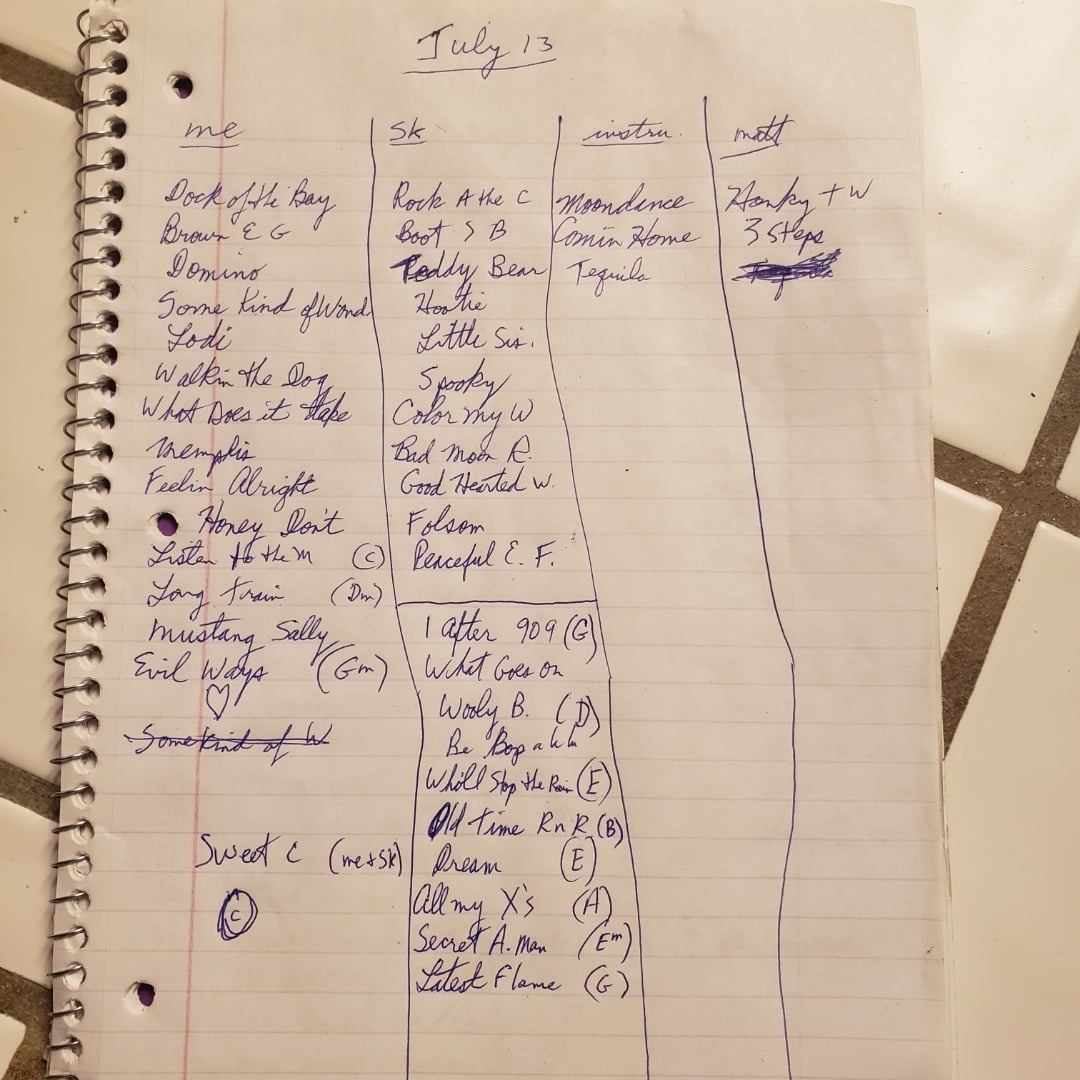 July 13
me
Dock of the Bay
Brown E G
Domino
Some Kind of Wond
Lodi
Walkin the Dog
What Does it Take
Memphis
Feelin Alright
Honey Don't
Listen to the M (C)
Long Train (Dm)
Mustang Sally
Evil Ways (Gm)
Some Kind of W
Sweet C (me + SK)
C
SK
Rock A the C
Boot S B
Teddy Bear
Hootie
Little Sis.
Spooky
Color My W
Bad Moon R.
Good Hearted W.
Folsom
Peaceful E. F.
1 After 909 (G)
What Goes On
Wooly B. (D)
Be Bop a
Who'll Stop the Rain (E)
Old Time R n R (B)
Dream (E)
All my X's (A)
Secret A. Man (Em)
Latest Flame (G)
instru.
Moondance
Comin Home
Tequila
matt
Honky + W
3 Steps